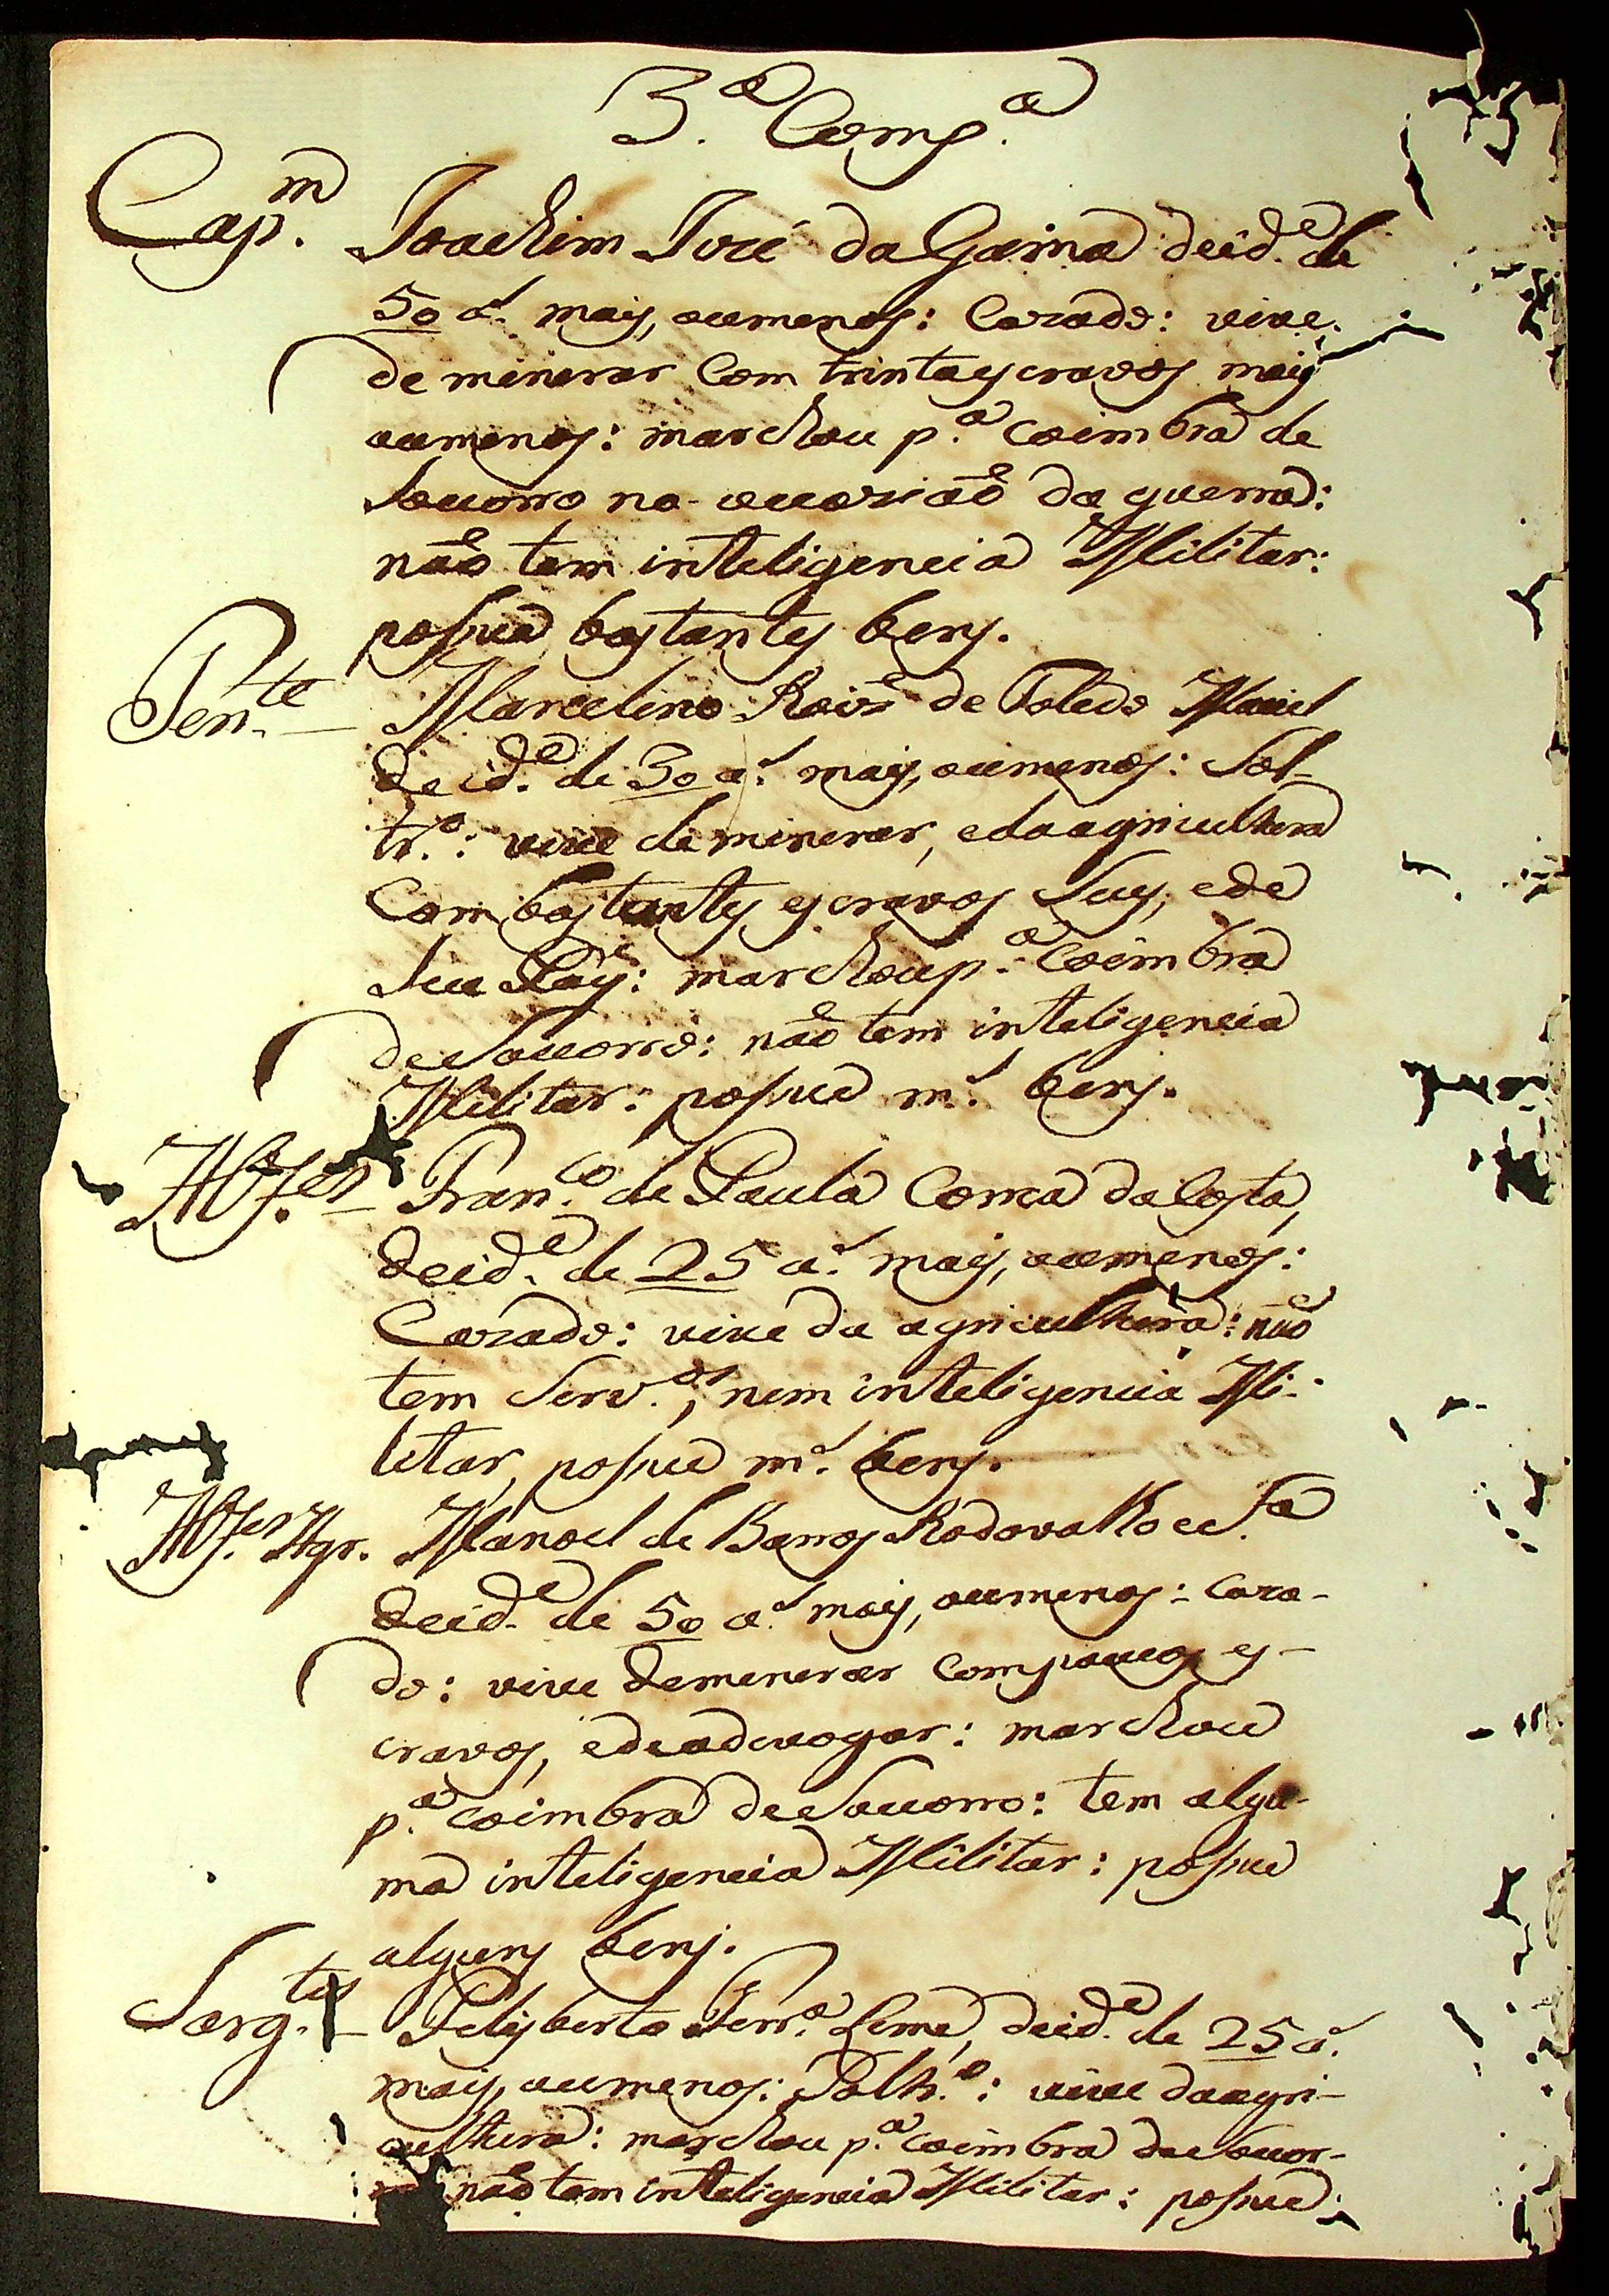 3.ª Comp.ª
Cap.m Joachim José da Gama deid.e de
50 a.s mais, oumenos: Cazado: vive
de minerar Com trinta escravos mais
oumenos: marchou p.ª Coimbra de
Socorro na occazião da guerra:
não tem inteligencia Militar:
possue bastantes bens.
Ten.te – Marcelino Roiz de Toledo Maciel
de id.e de 30 a.s mais, oumenos: Sol-
tr.o: vive deminerar, edaagricultura
Com bastantes escravos Seus, ede
Seu Pay: marchoup.ª Coimbra
deSocorro: não tem inteligencia
Militar: possue m.s bens.
Alf.es – Fran.co de Paula Correa daCosta,
deid.e de 25 a.s mais, oumenos:
Cazado: vive da agricultura: não
tem Serv.os, nem inteligencia Mi-
litar, possue m.s bens.
Alf.es Agr. Manoel de Barros Rodovalho eS.ª
deid.e de 50 a.s mais, oumenos: Caza-
do: vive deminerar Compoucos es-
cravos, edeadvogar: marchou
p.ª Coimbra deSocorro: tem algu-
ma inteligencia Militar: possue
alguns bens.
Sarg.tes – Felisberto Ferr.ª Leme, deid.e de 25 a.s
mais, oumenos: Soltr.o: vive daagri-
cultura: marchou p.ª Coimbra deSocor-
não tem inteligencia Militar: possue